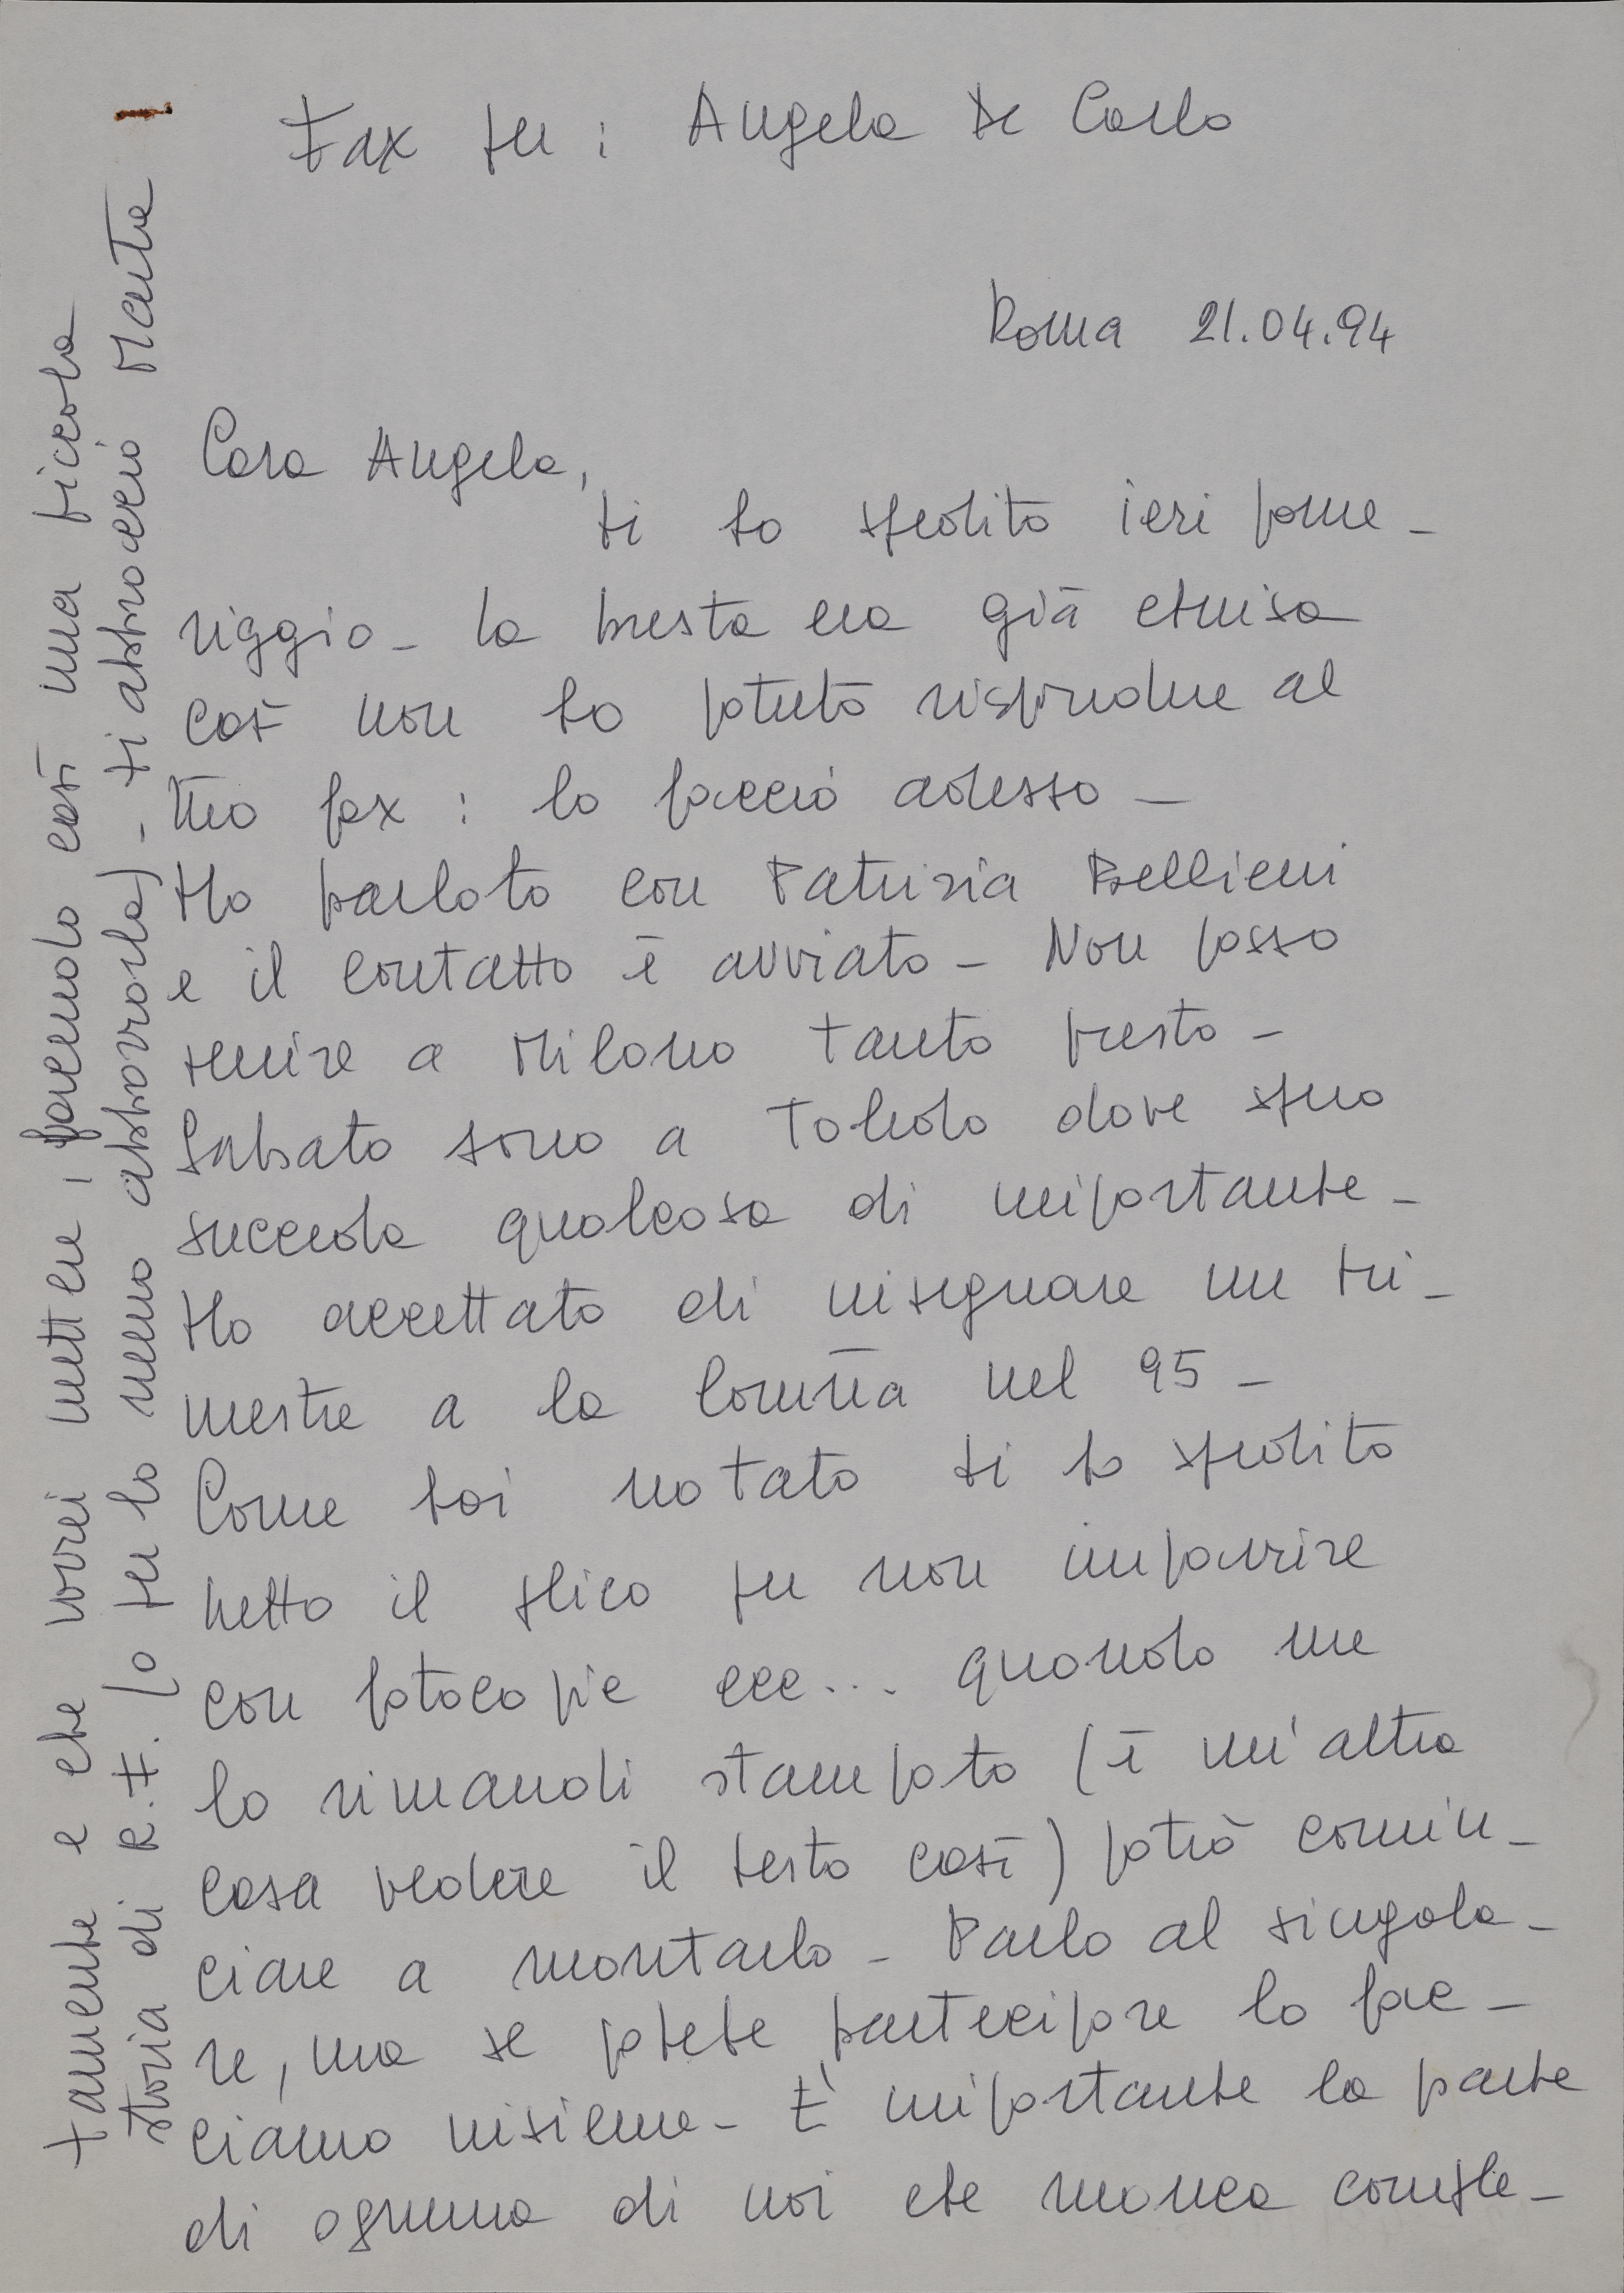 Fax per : Angela De Carlo
Roma 21.04.94
Cara Angela,
ti ho spedito ieri pome-
riggio - la busta era già chiusa
così non ho potuto rispondere al
tuo fax : lo faccio adesso -
Ho parlato con Patrizia Bellieni
e il contatto è avviato - Non posso
venire a Milano tanto presto -
Sabato sono a Toledo dove spero
succeda qualcosa di importante -
Ho accettato di insegnare un tri-
mestre a la Coruña nel 95 -
Come hai notato ti ho spedito
tutto il plico per non impazzire
con fotocopie ecc... quando me
lo rimandi stampato (è un'altra
cosa vedere il testo così) potrò comin-
ciare a montarlo - Parlo al singola-
re, ma se potete partecipare lo fac-
ciamo insieme - E' importante la parte
di ognuna di noi che manca comple-
tamente e che vorrei mettere, facendo così una piccola
storia di R.F. (o per lo meno abbozzarla) - ti abbraccio Marta